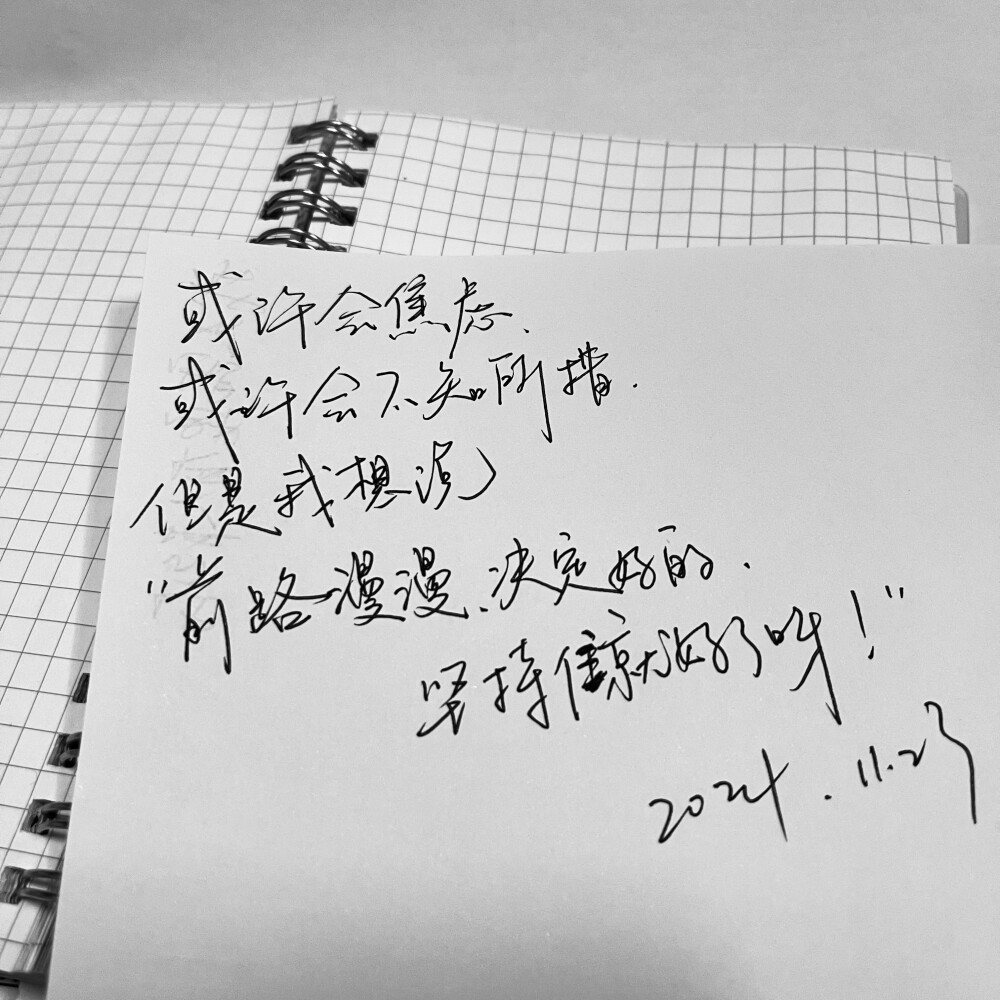 或许会焦虑、
或许会不知所措.
但是我想说
"前路漫漫、决定好的.
坚持住就好了呀！"
2024.11.23